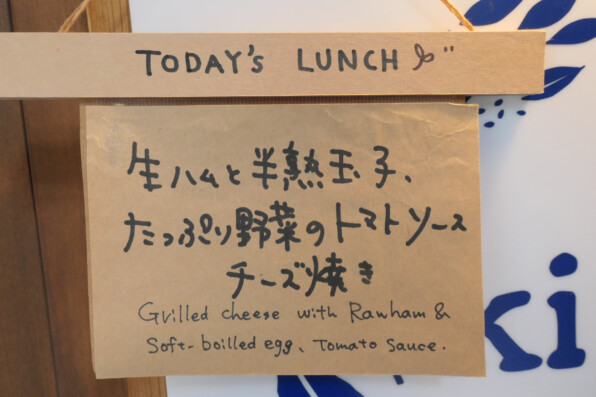 TODAY's LUNCH
生ハムと半熟玉子、
たっぷり野菜のトマトソース
チーズ焼き
Grilled cheese with Rawham &
Soft-boilled egg、Tomato Sauce.
ki